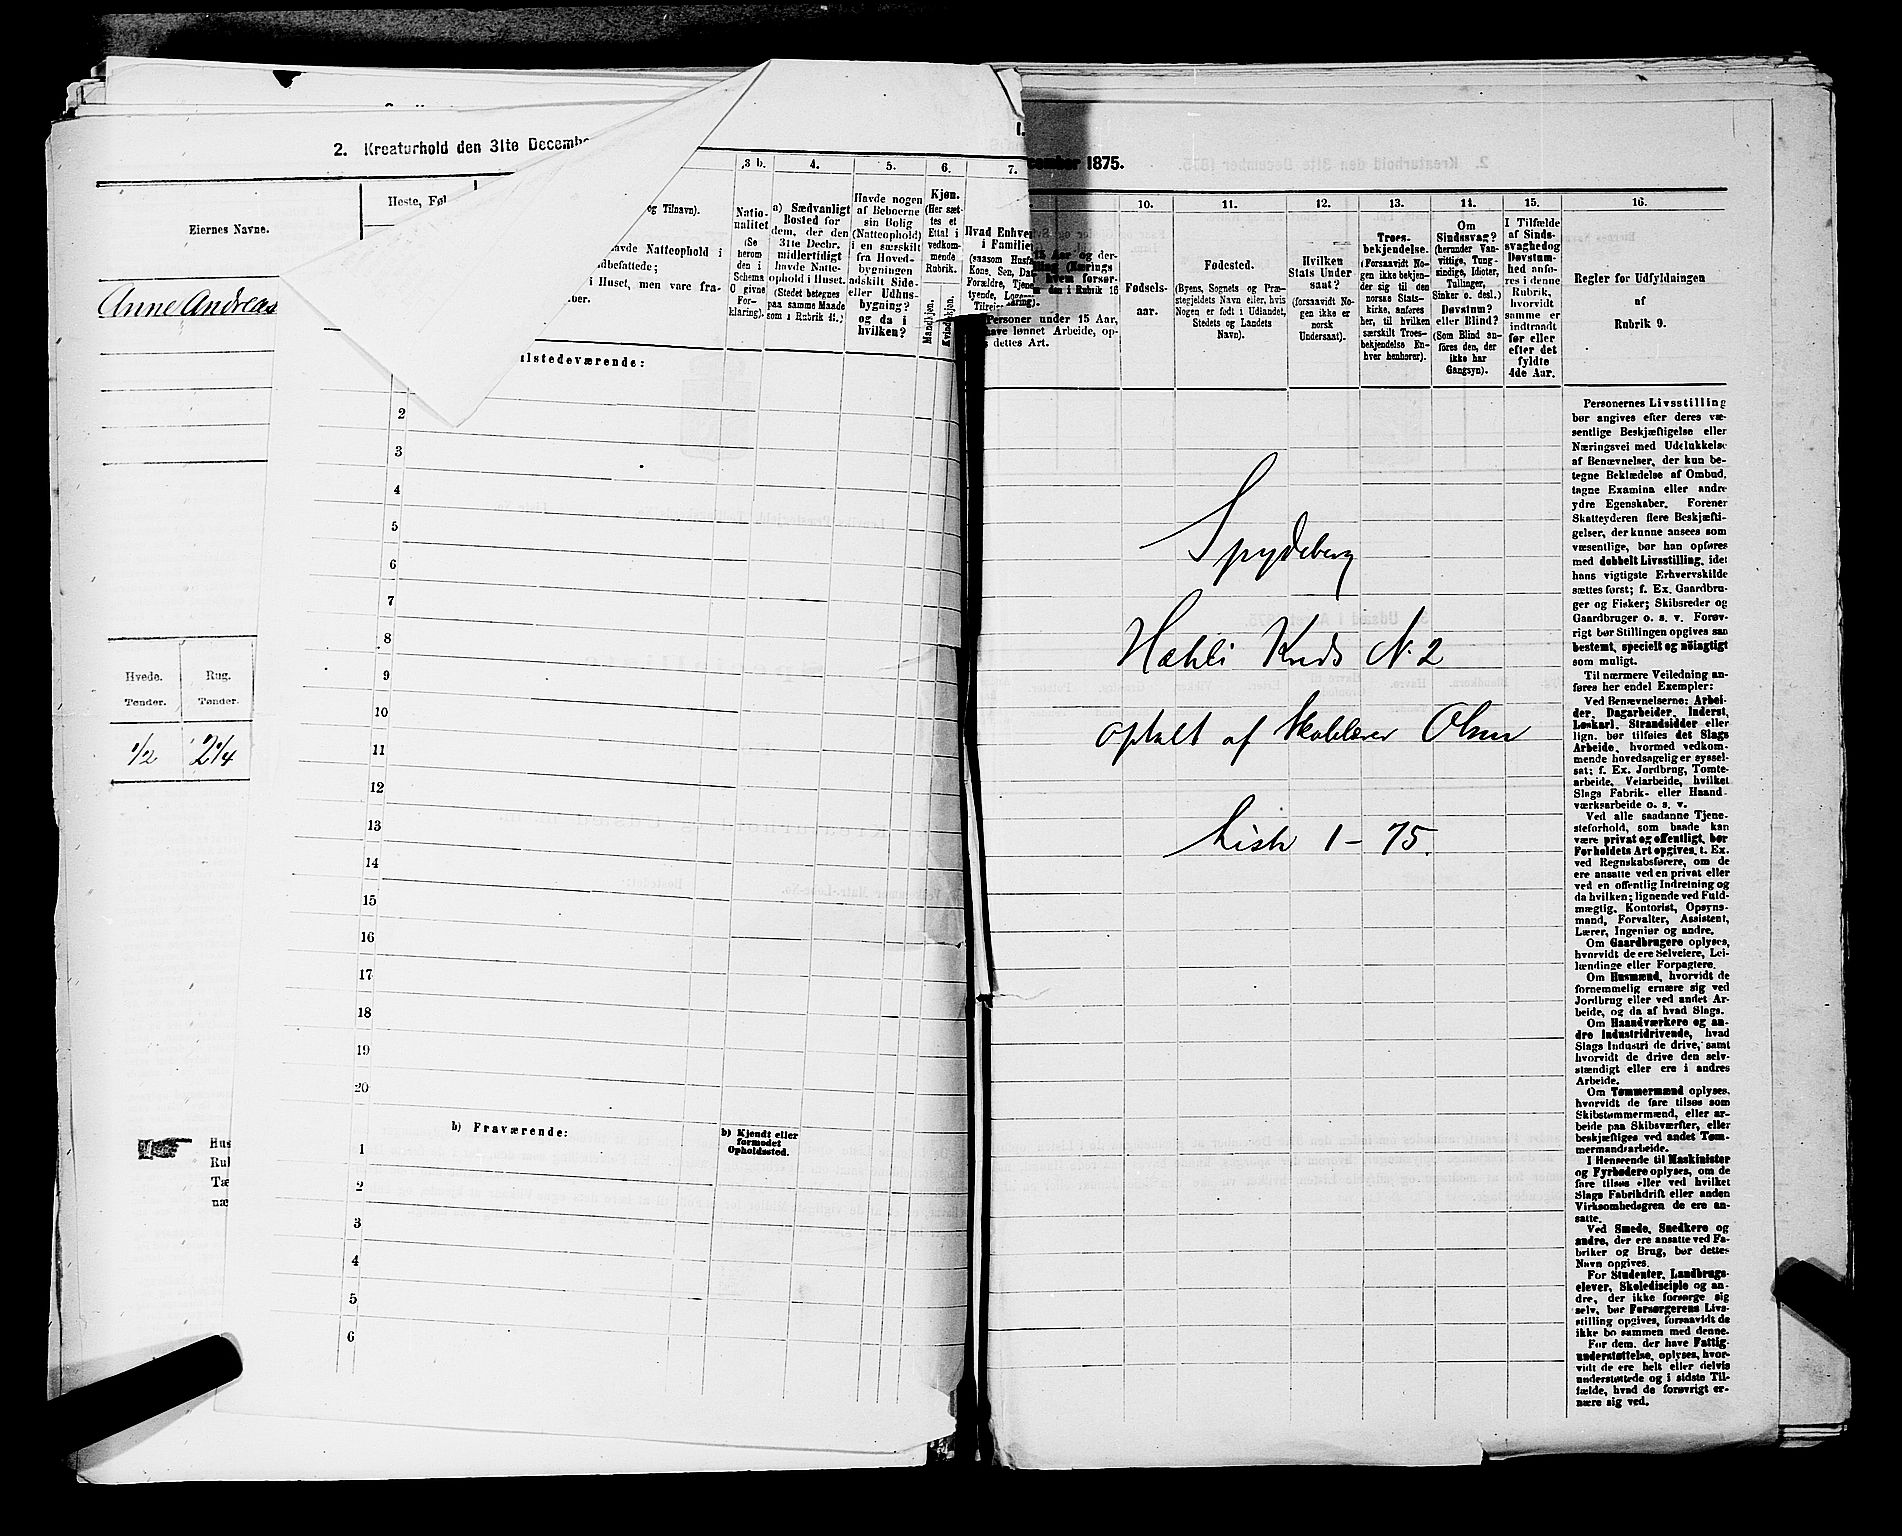 2. Kreaturhold den 31te Decembe
Eiernes Navne.
Heste, Føl
Anne Andreas
Hvede.
Tønder.
Rug.
Tønder.
1/2
2 1/4
Hus
Rul
Tæ
næ
og Tilnavn).
avde Natteophold i
dbefattede;
i Huset, men vare fra-
ber.
3 b.
Natio-
nalitet
(Se
herom
den i
Schema
O givne
For-
klaring).
4.
a) Sædvanligt
Bosted for
dem, der den
31te Decbr.
midlertidigt
havde Natte-
ophold i Huset.
(Stedet betegnes
paa samme Maade
som i Rubrik 11.)
5.
Havde nogen
af Beboerne
sin Bolig
(Natteophold)
i en særskilt
fra Hoved-
bygningen
adskilt Side-
eller Udhus-
bygning?
og da i
hvilken?
6.
Kjøn.
(Her sæt-
tes et
Ettal i
vedkom-
mende
Rubrik.
Mandkjøn.
Kvindekjøn.
7.
Hvad Enhver
i Familien
(saasom Husfa
Kone, Søn, Dat
Forældre, Tjene
tyende, Loge
Tilreis
alstedeværende:
2
3
4
5
6
7
8
9
10
11
12
13
14
15
16
17
18
19
20
b) Fraværende:
b) Kjendt eller
formodet
Opholdssted.
1
2
3
4
5
6
1.
cember 1875.
15 Aar og der-
lling (Nærings
hvem forsør-
den i Rubrik 16
aring).
Personer under 15 Aar,
have lønnet Arbeide, op-
s dettes Art.
10.
Fødsels-
aar.
11.
Fødested.
(Byens, Sognets og Præ-
stegjeldets Navn eller, hvis
Nogen er født i Udlandet,
Stedets og Landets
Navn).
12.
Hvilken
Stats Under-
saat?
(forsaavidt No-
gen ikke er
norsk
Undersaat).
13.
Troes-
bekjendelse.
(Forsaavidt No-
gen ikke bekjen-
der sig til den
norske Stats-
kirke, anføres
her, til hvilken
særskilt Troes-
bekjendelse En-
hver henhører).
14.
Om
Sindssvag?
(herunder Van-
vittige, Tung-
sindige, Idioter,
Tullinger,
Sinker o. desl.)
Døvstum?
eller Blind?
(Som Blind an-
føres den, der
ikke har
Gangsyn).
15.
I Tilfælde
af Sinds-
svaghed og
Døvstum-
hed anfø-
res i denne
Rubrik,
hvorvidt
samme er
indtraadt
før eller
efter det
fyldte
4de Aar.
16.
Regler for Udfyldningen
af
Rubrik 9.
Spydeberg
Hæhli Kreds N. 2
optalt af Skolelærer Olsen
Liste 1 - 75.
Personernes Livsstilling
bør angives efter deres væ-
sentlige Beskjæftigelse eller
Næringsvei med Udelukkelse
af Benævnelser, der kun be-
tegne Beklædelse af Ombud,
tagne Examina eller andre
ydre Egenskaber. Forener
Skatteyderen flere Beskjæfti-
gelser, der kunne ansees som
væsentlige, bør han opføres
med dobbelt Livsstilling, idet
hans vigtigste Erhvervskilde
sættes først; f. Ex. Gaardbru-
ger og Fisker; Skibsreder og
Gaardbruger o. s. v. Forøv-
rigt bør Stillingen opgives saa
bestemt, specielt og nöiagtigt
som muligt.
Til nærmere Veiledning an-
føres her endel Exempler:
Ved Benævnelserne: Arbei-
der, Dagarbeider, Inderst,
Løskarl, Strandsidder eller
lign. bør tilføies det Slags
Arbeide, hvormed vedkom-
mende hovedsagelig er syssel-
sat; f. Ex. Jordbrug, Tomte-
arbeide, Veiarbeide, hvilket
Slags Fabrik- eller Haand-
værksarbeide o. s. v.
Ved alle saadanne Tjene-
steforhold, som baade kan
være privat og offentligt, bør
Forholdets Art opgives, t. Ex.
ved Regnskabsførere, om de
ere ansatte ved en privat eller
ved en offentlig Indretning og
da hvilken; lignende ved Fuld-
mægtig, Kontorist, Opsyns-
mand, Forvalter, Assistent,
Lærer, Ingeniør og andre.
Om Gaardbrugere oplyses,
hvorvidt de ere Selveiere, Lei-
lændinge eller Forpagtere.
Om Husmænd, hvorvidt de
fornemmelig ernære sig ved
Jordbrug eller ved andet Ar-
beide, og da af hvad Slags.
Om Haandværkere og an-
dre Industridrivende, hvad
Slags Industri de drive, samt
hvorvidt de drive den selv-
stændigt eller ere i andres
Arbeide.
Om Tømmermænd oplyses,
hvorvidt de fare tilsøs som
Skibstømmermænd, eller ar-
beide paa Skibsværfter, eller
beskjæftiges ved andet Tøm-
mermandsarbeide.
I Henseende til Maskinister
og Fyrbødere oplyses, om de
fare tilsøs eller ved hvilket
Slags Fabrikdrift eller anden
Virksomhedsgren de ere an-
satte.
Ved Smede, Snedkere og
andre, der ere ansatte ved Fa-
briker og Brug, bør dettes
Navn opgives.
For Studenter, Landbrugs-
elever, Skoledisciple og an-
dre, der ikke forsørge sig
selv, bør Forsørgerens Livs-
stilling opgives, forsaavidt de
ikke bo sammen med denne.
For dem, der have Fattig-
understøttelse, oplyses, hvor-
vidt de ere helt eller delvis
understøttede og i sidste Til-
fælde, hvad de forøvrigt er-
nære sig ved.